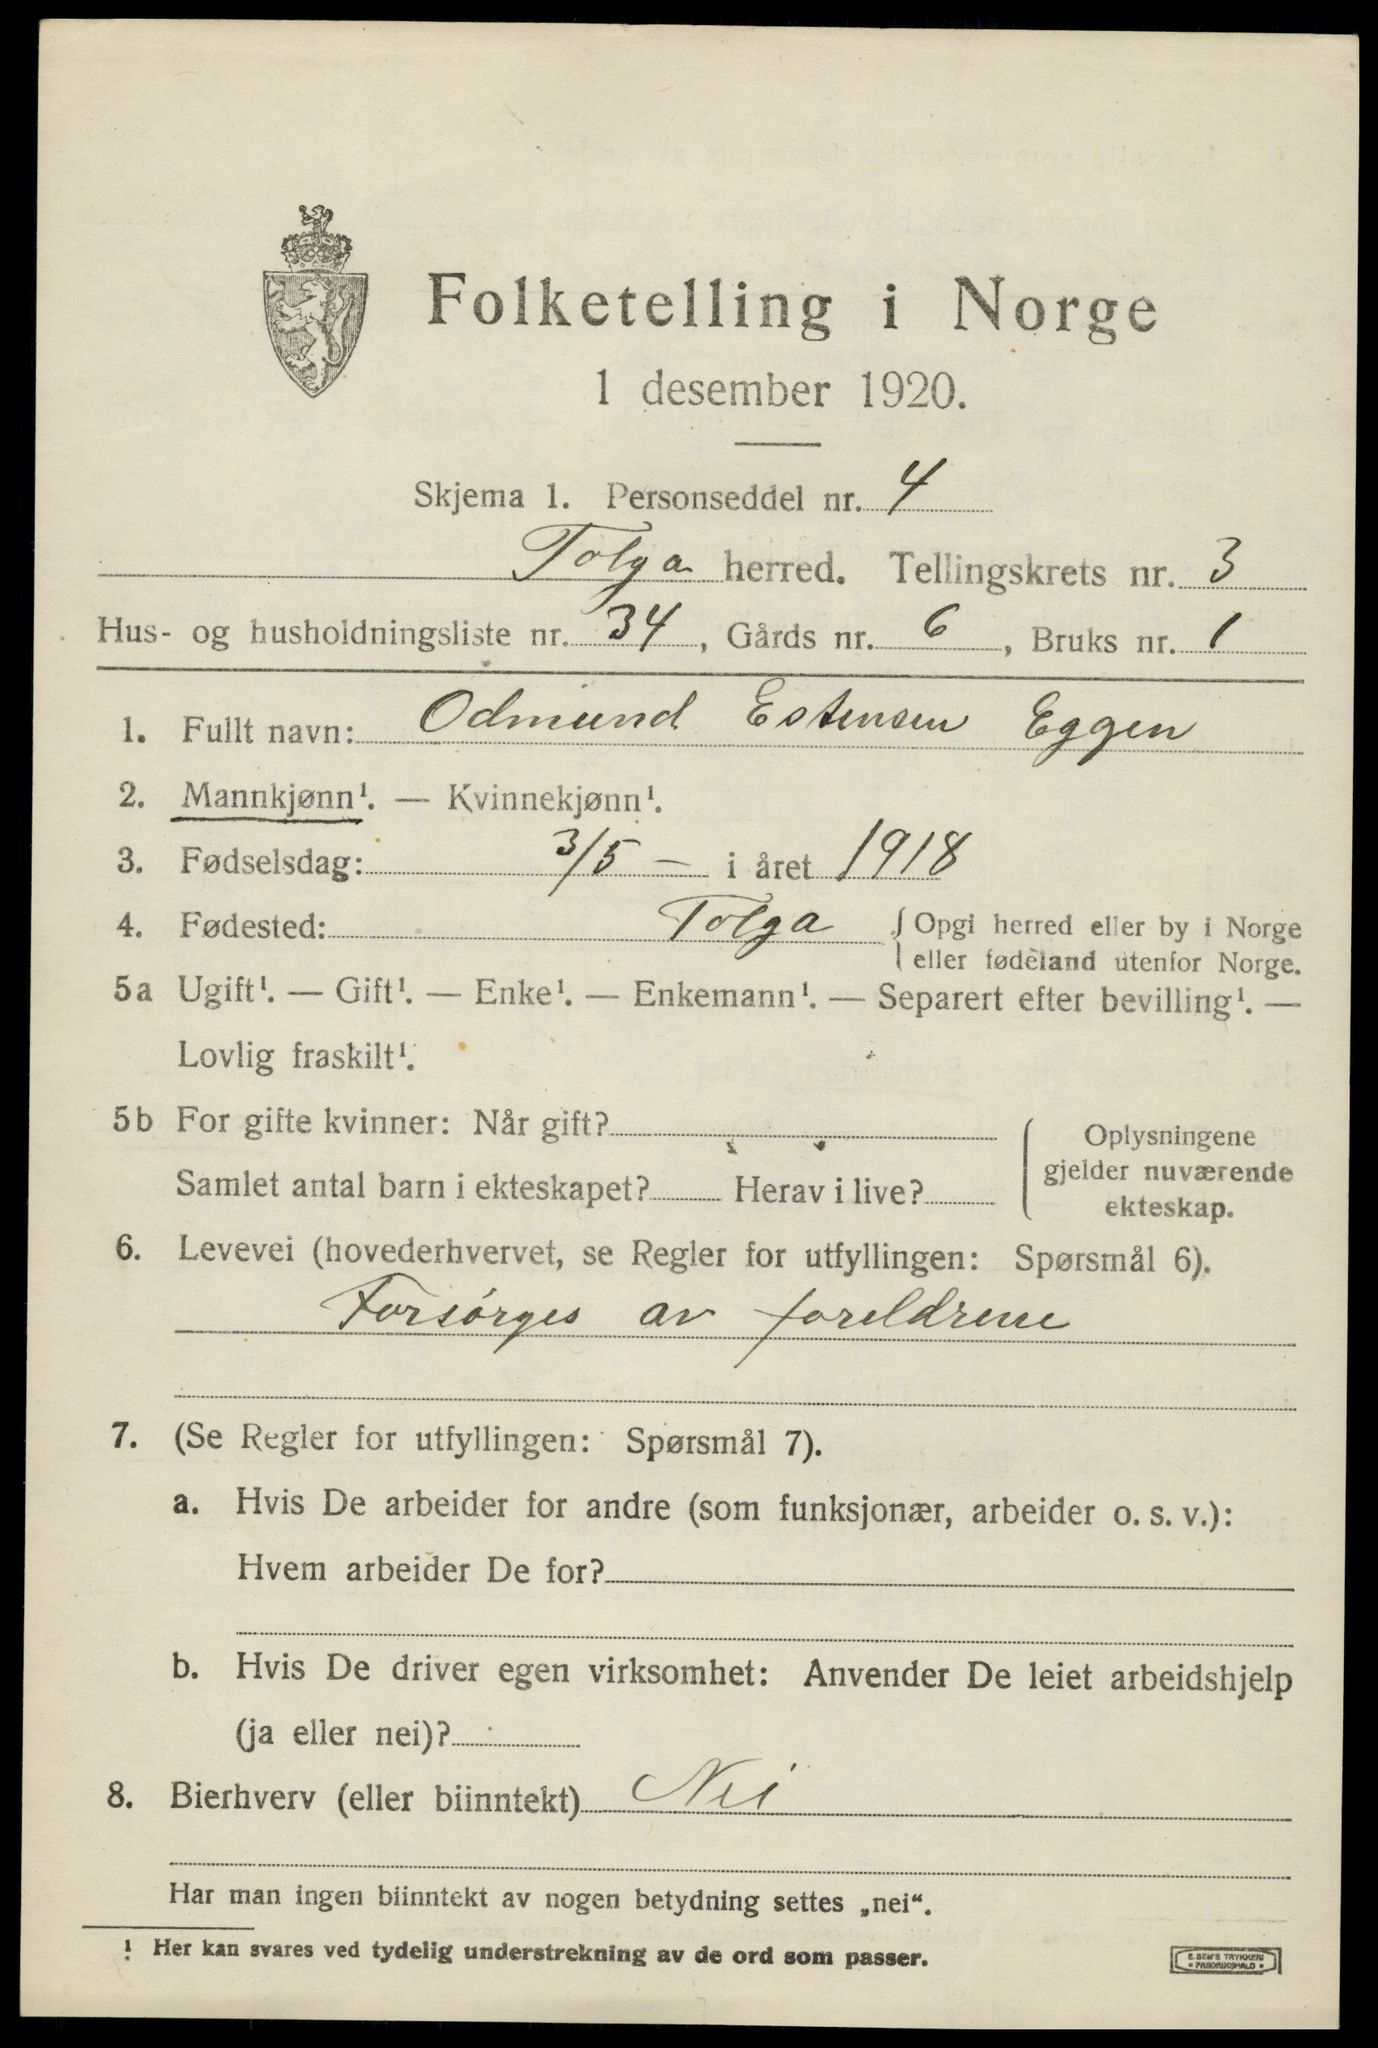 Folketelling i Norge
1 desember 1920.
Skjema 1. Personseddel nr. 4
Tolga herred. Tellingskrets nr. 3
Hus- og husholdningsliste nr. 34, Gårds nr. 6, Bruks nr. 1
1. Fullt navn: Odmund Estensen Eggen
2. Mannkjønn¹. — Kvinnekjønn¹.
3. Fødselsdag: 3/5 — i året 1918
4. Fødested: Tolga { Opgi herred eller by i Norge
eller fødeland utenfor Norge.
5a Ugift¹. — Gift¹. — Enke¹. — Enkemann¹. — Separert efter bevilling¹. —
Lovlig fraskilt¹.
5b For gifte kvinner: Når gift?
Samlet antal barn i ekteskapet? Herav i live?
Oplysningene
gjelder nuværende
ekteskap.
6. Levevei (hovederhvervet, se Regler for utfyllingen: Spørsmål 6).
Forsørges av foreldrene
7. (Se Regler for utfyllingen: Spørsmål 7).
a. Hvis De arbeider for andre (som funksjonær, arbeider o. s. v.):
Hvem arbeider De for?
b. Hvis De driver egen virksomhet: Anvender De leiet arbeidshjelp
(ja eller nei)?
8. Bierhverv (eller biinntekt) Nei
Har man ingen biinntekt av nogen betydning settes „nei“.
¹ Her kan svares ved tydelig understrekning av de ord som passer.
E. SEM'S TRYKKERI
• FREDRIKSHALD •